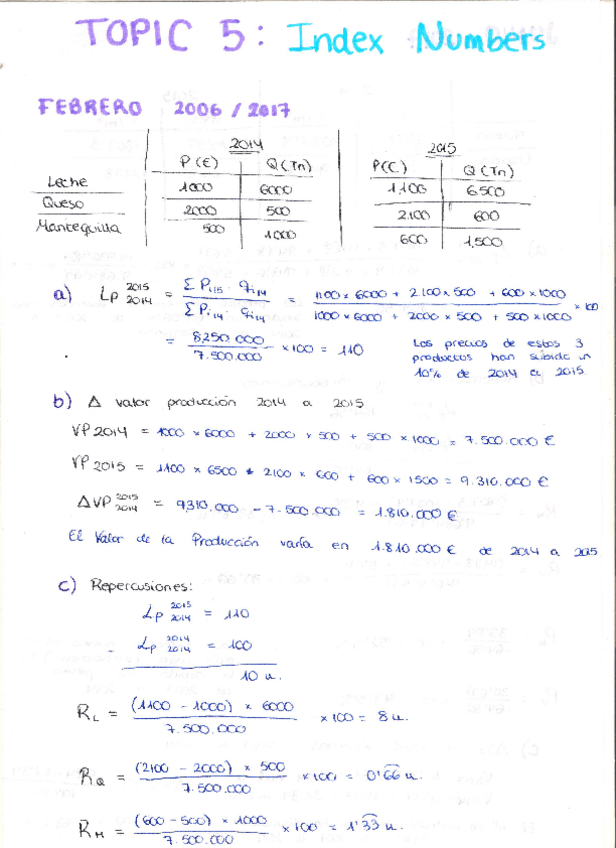 TOPIC 5: Index Numbers
FEBRERO 2006 / 2017
2014 2015
P (€) Q (Tn) P(€) Q (Tn)
Leche 1000 6000 1100 6500
Queso 2000 500 2.100 600
Mantequilla 500 1000 600 1.500
a) Lp 2015 2014 = Σ Pi15 · qi14 / Σ Pi14 · qi14 = 1100 x 6000 + 2.100 x 500 + 600 x 1000 / 1000 x 6000 + 2000 x 500 + 500 x 1000 x 100
= 8.250.000 / 7.500.000 x 100 = 110
Los precios de estos 3
productos han subido un
10% de 2014 a 2015
b) Δ valor producción 2014 a 2015
VP 2014 = 1000 x 6000 + 2000 x 500 + 500 x 1000 = 7.500.000 €
VP 2015 = 1100 x 6500 + 2100 x 600 + 600 x 1500 = 9.310.000 €
ΔVP 2015 2014 = 9310.000 - 7.500.000 = 1.810.000 €
El Valor de la Producción varía en 1.810.000 € de 2014 a 2015
c) Repercusiones:
Lp 2015 2014 = 110
Lp 2014 2014 = 100
10 u.
RL = (1100 - 1000) x 6000 / 7.500.000 x 100 = 8 u.
RQ = (2100 - 2000) x 500 / 7.500.000 x 100 = 0'66 u.
RM = (600 - 500) x 1000 / 7.500.000 x 100 = 1'33 u.